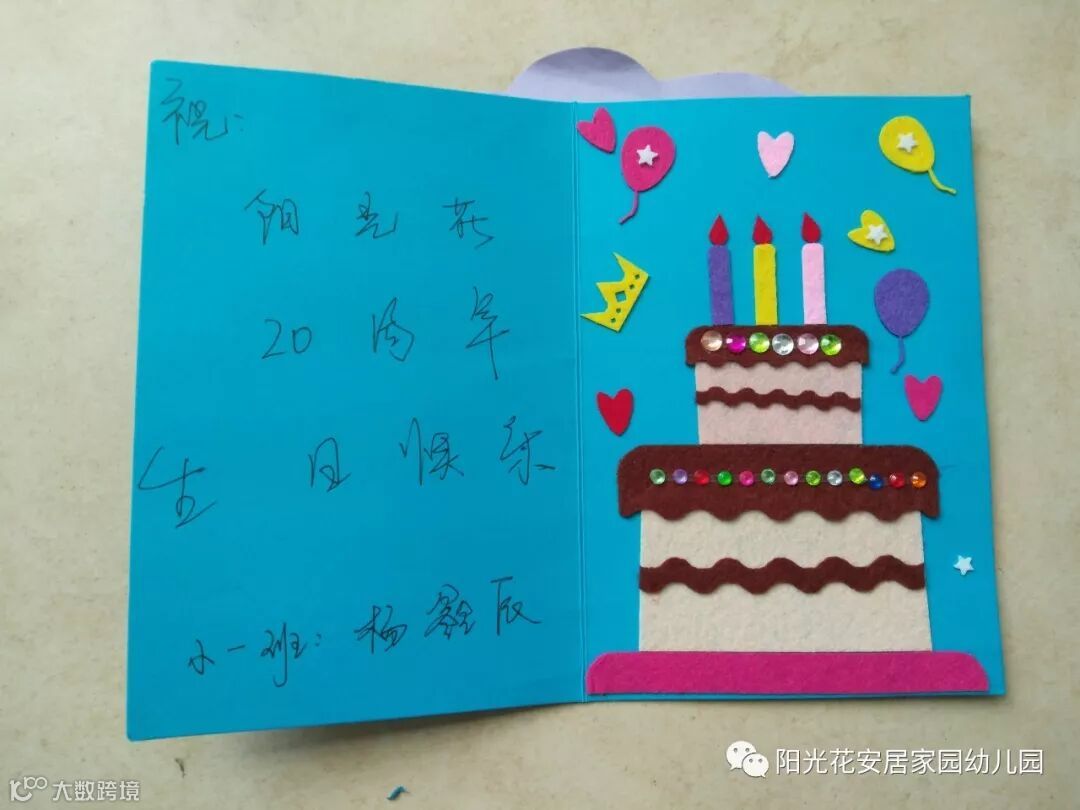 祝:
阳光花
20周年
生日快乐
小一班:杨 辰
阳光花安居家园幼儿园
大数跨境